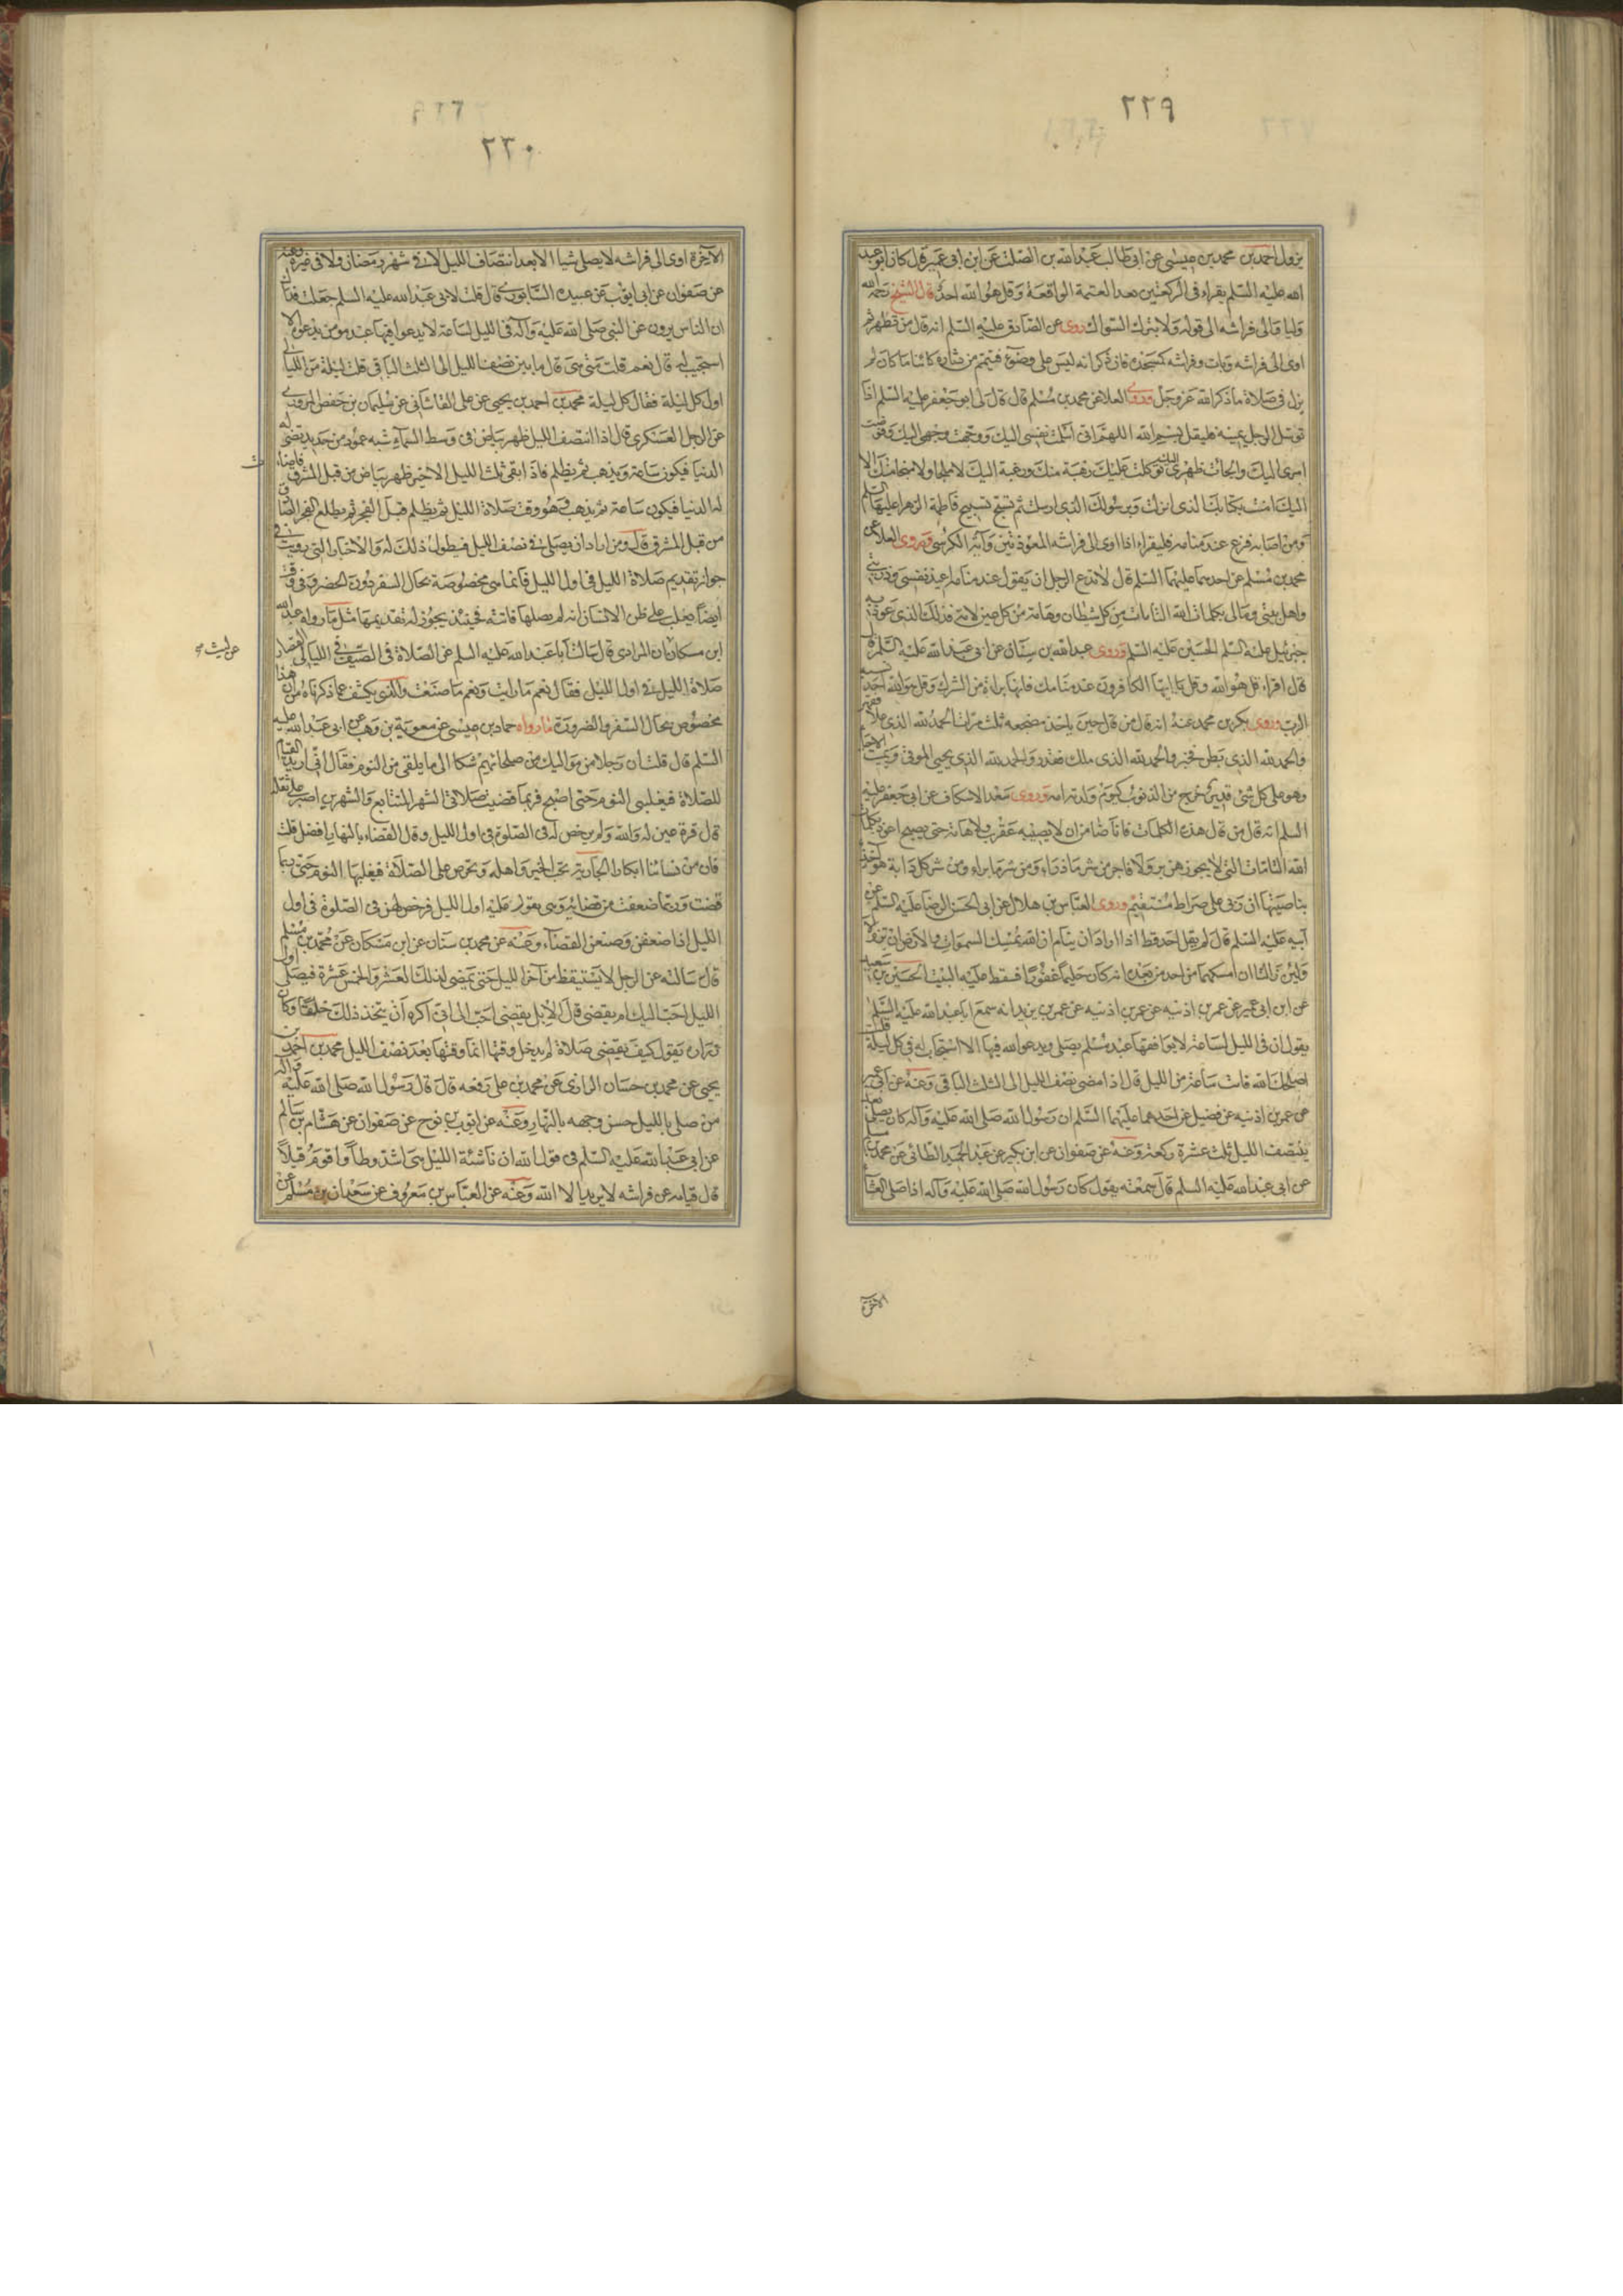 ٢٢٩
يزول احمد بن محمد بن عيسى عن ابى طالب عبد الله بن الصلت عن ابن ابى عمير قال كان ابو عبد
الله عليه السلم يقراء فى الركعتين بعد العتمة الواقعة وقل هو الله احد قال الشيخ رحمه الله
ولياو الى فراشه الى قوله ولا يترك السواك روى عن الصادق عليه السلم انه قال من تطهر ثم
اوى الى فراشه وبات وفراشه كمسجده فان ذكر انه ليس على وضوء فتيمم من دثاره كائنا ما كان لم
يزل فى صلاة ما ذكر الله عز وجل وروى العلا عن محمد بن مسلم قال قال لى ابو جعفر عليه السلم اذا
توسل الرجل يمينه فليقل بسم الله اللهم انى اسلمت نفسى اليك ووجهت وجهى اليك وفوضت
امرى اليك والجأت ظهرى اليك توكلت عليك رهبة منك ورغبة اليك لا ملجا ولا منجا منك الا
اليك امنت بكتابك الذى انزلت وبرسولك الذى ارسلت ثم تسبح تسبيح فاطمة الزهرا عليها السلم
ومن اصابه فزع عند منامه فليقراء اذا اوى الى فراشه المعوذتين وآية الكرسى وروى العلا عن
محمد بن مسلم عن احدهما عليهما السلم قال لا تدع الرجل ان يقول عند منامه اعيذ نفسى وذريتى
واهل بيتى ومالى بكلمات الله التامات من كل شيطان وهامة من كل عين لامة فذلك الذى عوذ به
جبرئيل عليه السلم الحسين عليه السلم وروى عبد الله بن سنان عن ابى عبد الله عليه السلم انه
قال اقراء قل هو الله وقل يا ايها الكافرون عند منامك فانها براءة من الشرك وقل هو الله احد نسبة
الرب وروى بكر بن محمد عنه انه قال من قال حين ياخذ مضجعه ثلث مرات الحمد لله الذى علا فقهر
والحمد لله الذى بطن فخبر والحمد لله الذى ملك فقدر والحمد لله الذى يحيى الموتى ويميت الاحياء
وهو على كل شئ قدير خرج من الذنوب كيوم ولدته امه وروى سعد الاسكاف عن ابى جعفر عليه
السلم انه قال من قال هذه الكلمات فانا ضامن ان لا يصيبه عقرب ولا هامة حتى يصبح اعوذ بكلمات
الله التامات التى لا يجوزهن بر ولا فاجر من شر ما ذراء ومن شر ما براء ومن شر كل دابة هو آخذ
بناصيتها ان ربى على صراط مستقيم وروى العباس بن هلال عن ابى الحسن الرضا عليه السلم عن
ابيه عليه السلم قال لم يقل احد قط اذا اراد ان ينام ان الله يمسك السموات والارض ان تزولا
ولئن زالتا ان امسكهما من احد من بعده انه كان حليما غفورا فسقط عليه البيت الحسين بن سعيد
عن ابن ابى عمير عن عمر بن اذنيه عن عمر بن اذنيه عن عمر بن يزيد انه سمع ابا عبد الله عليه السلم
يقول ان فى الليل لساعة لا يوافقها عبد مسلم يصلى ويدعو الله فيها الا استجاب له فى كل ليلة قلت
اصلحك الله فاىة ساعة من الليل قال اذا مضى نصف الليل الى الثلث الباقى وعنه عن ابى عمير
عن عمر بن اذنيه عن فضيل عن احدهما عليهما السلم ان رسول الله صلى الله عليه وآله كان يصلى بعد ما
ينتصف الليل ثلث عشرة ركعة وعنه عن صفوان عن ابن بكير عن عبد الحميد الطائى عن محمد بن مسلم
عن ابى عبد الله عليه السلم قال سمعته يقول كان رسول الله صلى الله عليه وآله اذا صلى العشاء
الآخرة
٢٣٠
الآخرة اوى الى فراشه لا يصلى شيا الا بعد انتصاف الليل لا فى شهر رمضان ولا فى غيره وعنه
عن صفوان عن ابى ايوب عن عبيده السابورى قال قلت لابى عبد الله عليه السلم جعلت فداك
ان الناس يروون عن النبى صلى الله عليه وآله فى الليل لساعة لا يدعوا فيها عبد مومن بدعوة الا
استجيب له قال نعم قلت متى هى قال ما بين نصف الليل الى الثلث الباقى قلت ليلة من الليالى
او كل ليلة فقال كل ليلة محمد بن احمد بن يحيى عن على القاشانى عن سليمان بن حفص المروزى
عن الرجل العسكرى قال اذا انتصف الليل ظهر بياض فى وسط السماء شبه عمود من حديد تضئ له
الدنيا فيكون ساعة ويذهب ثم يظلم فاذا بقى ثلث الليل الاخير ظهر بياض من قبل المشرق فاضاءت
له الدنيا فيكون ساعة ثم يذهب وهو وقت صلاة الليل ثم يظلم قبل الفجر ثم يطلع الفجر الصادق
من قبل المشرق قال ومن اراد ان يصلى فى نصف الليل فيطول ذلك له والاخبار التى رويت فى
جواز تقديم صلاة الليل فى اول الليل فانما هى مخصوصة بحال السفر دون الحضر وفى وقت
ايضا يغلب على ظن الانسان انه لم يصلها فاتته فحينئذ يجوز له تقديمها مثل ما رواه عبد الله
ابن مسكان ان المرادى قال سالت ابا عبد الله عليه السلم عن الصلاة فى الصيف فى الليالى القصار
عن ليث صح
صلاة الليل فى اول الليل فقال نعم ما رايت ونعم ما صنعت والذى يكشف عما ذكرناه من ان هذا
مخصوص بحال السفر والضرورة ما رواه حماد بن عيسى عن معوية بن وهب عن ابى عبد الله عليه
السلم قال قلت ان رجلا من مواليك من صلحائهم شكا الى ما يلقى من النوم فقال انى اريد القيام
للصلاة فيغلبنى النوم حتى اصبح فربما قضيت صلاتى الشهر المتتابع والشهرين اصبر على ثقله
قال قرة عين له والله ولم يرخص له فى الصلوة فى اول الليل وقال القضاء بالنهار افضل قلت
فان من نسائنا ابكارا الجارية تحب الخير واهله وتحرص على الصلاة فيغلبها النوم حتى ربما
قضت وربما ضعفت من قضائه وهى يقوى عليه اول الليل فرخص لهن فى الصلوة فى اول
الليل اذا ضعفن وضيعن القضاء وعنه عن محمد بن سنان عن ابن مسكان عن محمد بن مسلم
قال سالته عن الرجل لا يستيقظ من آخر الليل حتى تمضى لذلك العشر والخمس عشرة فيصلى اول
الليل احب اليك ام يقضى قال لا بل يقضى احب الى انى اكره ان يتخذ ذلك خلقا وكان
زرارة يقول كيف يقضى صلاة لم يدخل وقتها انما وقتها بعد نصف الليل محمد بن احمد بن
يحيى عن محمد بن حسان الرازى عن محمد بن على رفعه قال قال رسول الله صلى الله عليه وآله
من صلى بالليل حسن وجهه بالنهار وعنه عن ايوب بن نوح عن صفوان عن هشام بن سالم
عن ابى عبد الله عليه السلم فى قول الله ان ناشئة الليل هى اشد وطأ واقوم قيلا
قال قيامه عن فراشه لا يريد الا الله وعنه عن العباس بن معروف عن سعدان بن مسلم عن